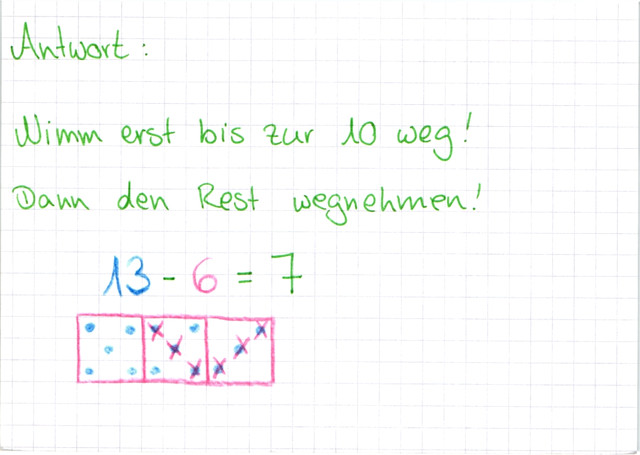 Antwort:
Nimm erst bis zur 10 weg!
Dann den Rest wegnehmen!
13 - 6 = 7